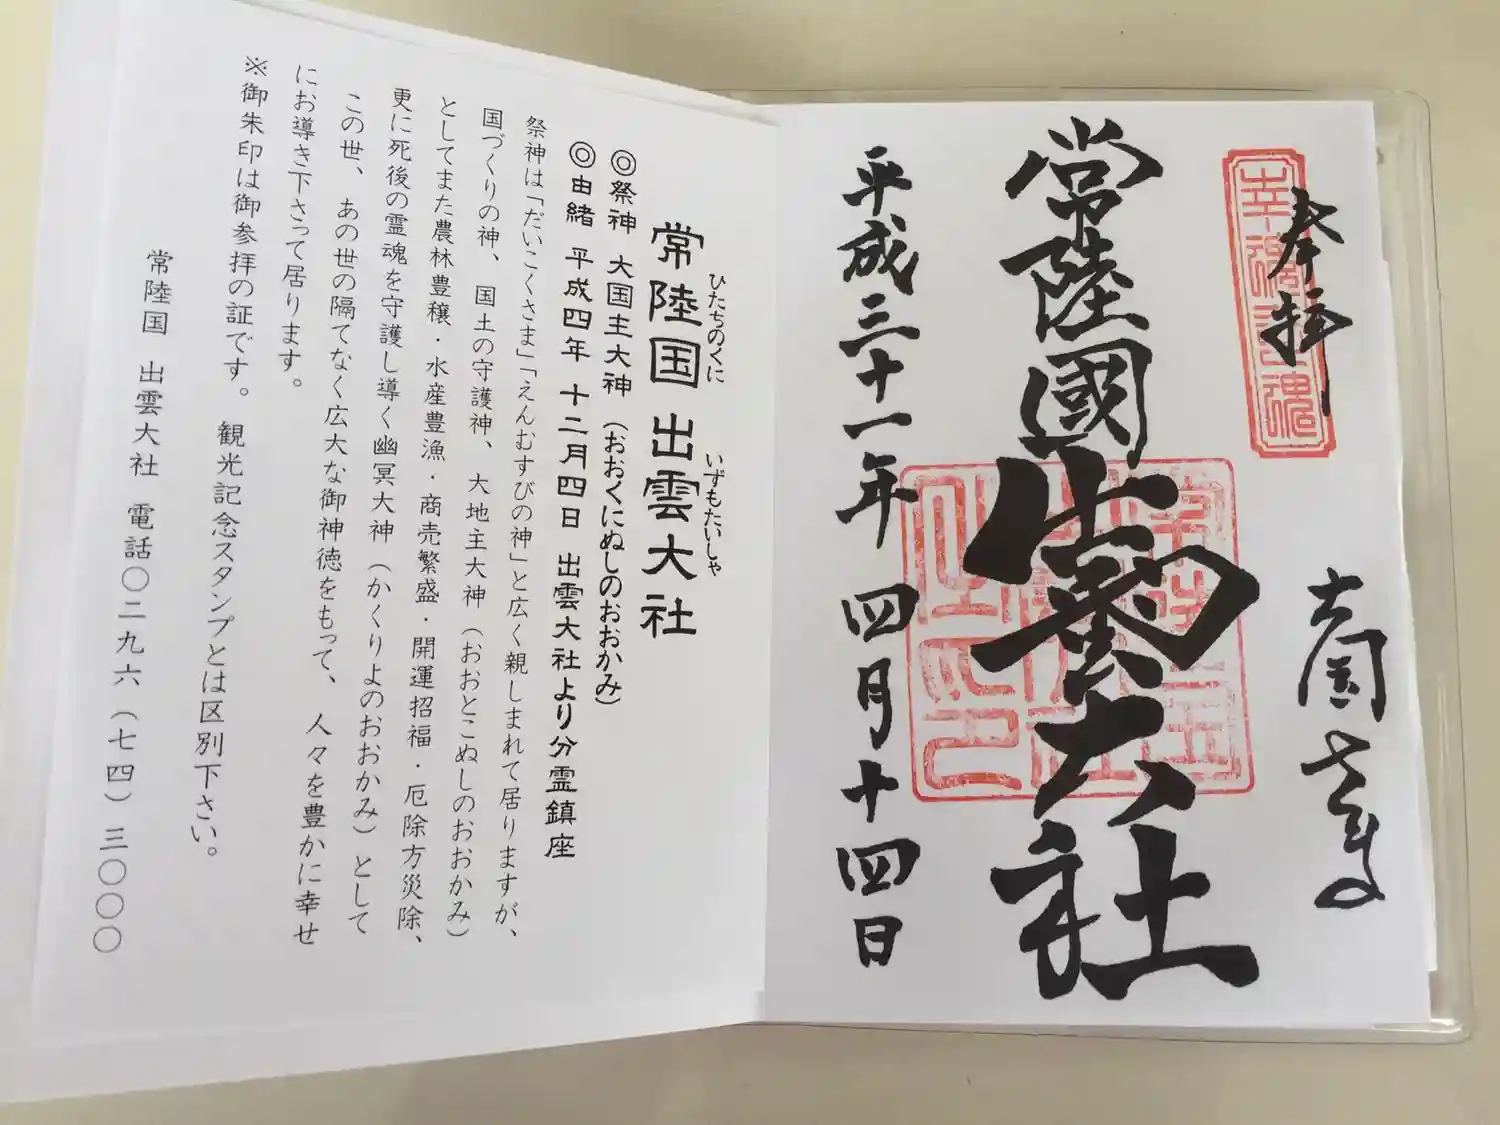 奉拝
幸魂奇魂
常陸國出雲大社
平成三十一年四月十四日
ひたちのくに いずもたいしゃ
常陸国 出雲大社
◎祭神 大国主大神（おおくにぬしのおおかみ）
◎由緒 平成四年 十二月四日 出雲大社より分霊鎮座
祭神は「だいこくさま」「えんむすびの神」と広く親しまれて居りますが、
国づくりの神、国土の守護神、大地主大神（おおとこぬしのおおかみ）
としてまた農林豊穣・水産豊漁・商売繁盛・開運招福・厄除方災除、
更に死後の霊魂を守護し導く幽冥大神（かくりよのおおかみ）として
この世、あの世の隔てなく広大な御神徳をもって、人々を豊かに幸せ
にお導き下さって居ります。
※御朱印は御参拝の証です。観光記念スタンプとは区別下さい。
常陸国 出雲大社 電話〇二九六（七四）三〇〇〇